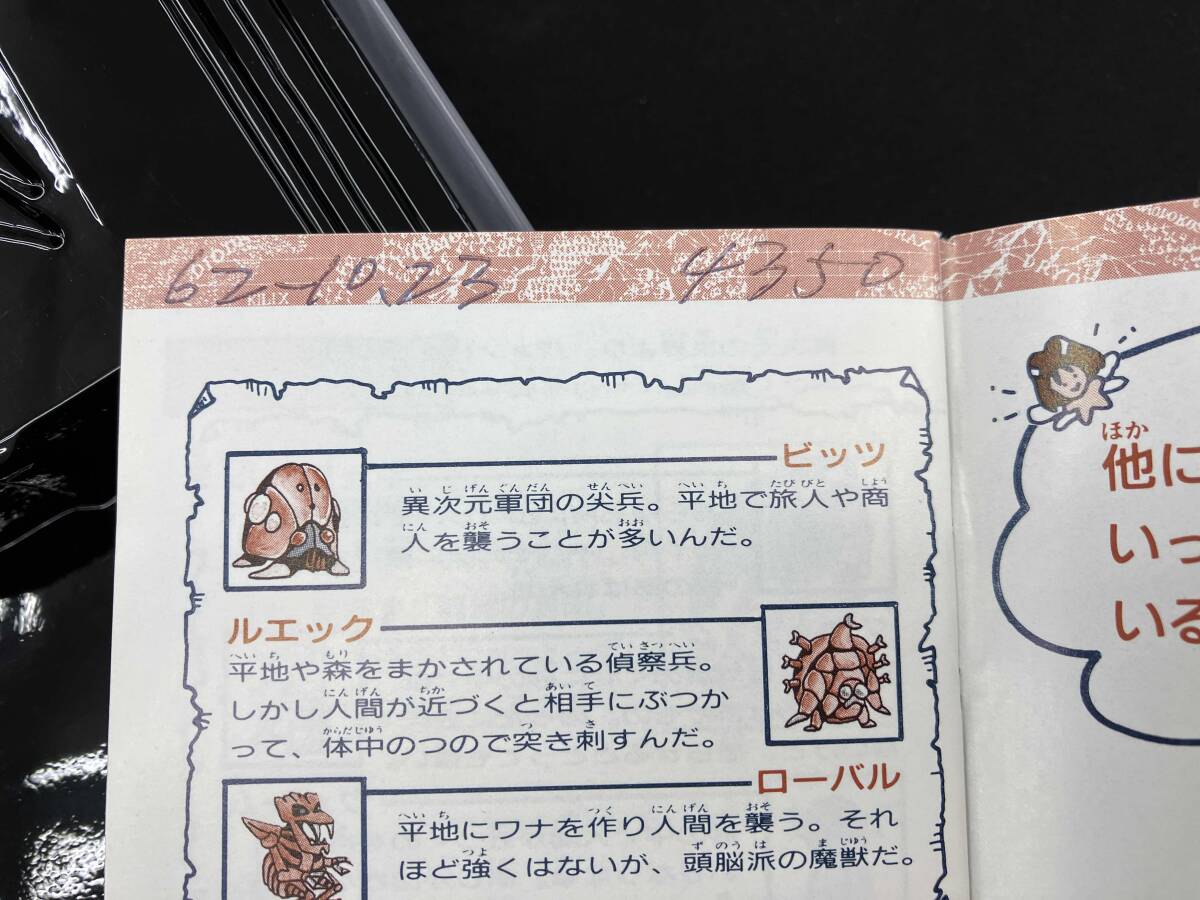 62-10.23 4350
ビッツ
異次元軍団の尖兵。平地で旅人や商
人を襲うことが多いんだ。
ルエック
平地や森をまかされている偵察兵。
しかし人間が近づくと相手にぶつか
って、体中のつので突き刺すんだ。
ローバル
平地にワナを作り人間を襲う。それ
ほど強くはないが、頭脳派の魔獣だ。
他に
いっ
いる